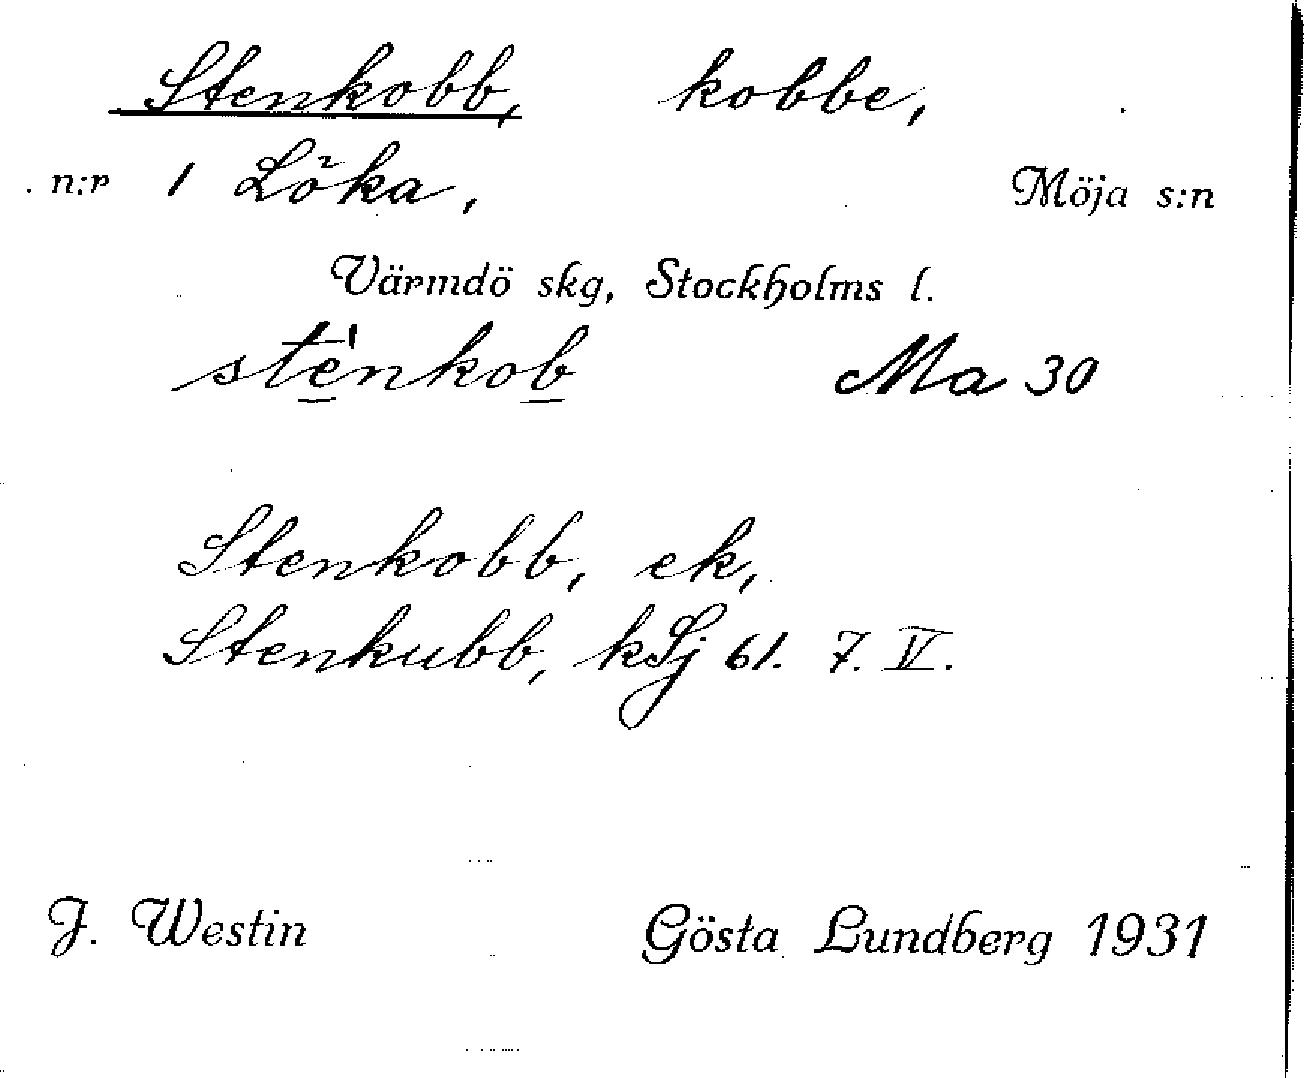 Stenkobb, kobbe,
n:r 1 Löka, Möja s:n
Värmdö skg, Stockholms l.
sté̱nkoḇ Ma 30
Stenkobb, ek,
Stenkubb, kSj 61. 7. V.
J. Westin Gösta Lundberg 1931